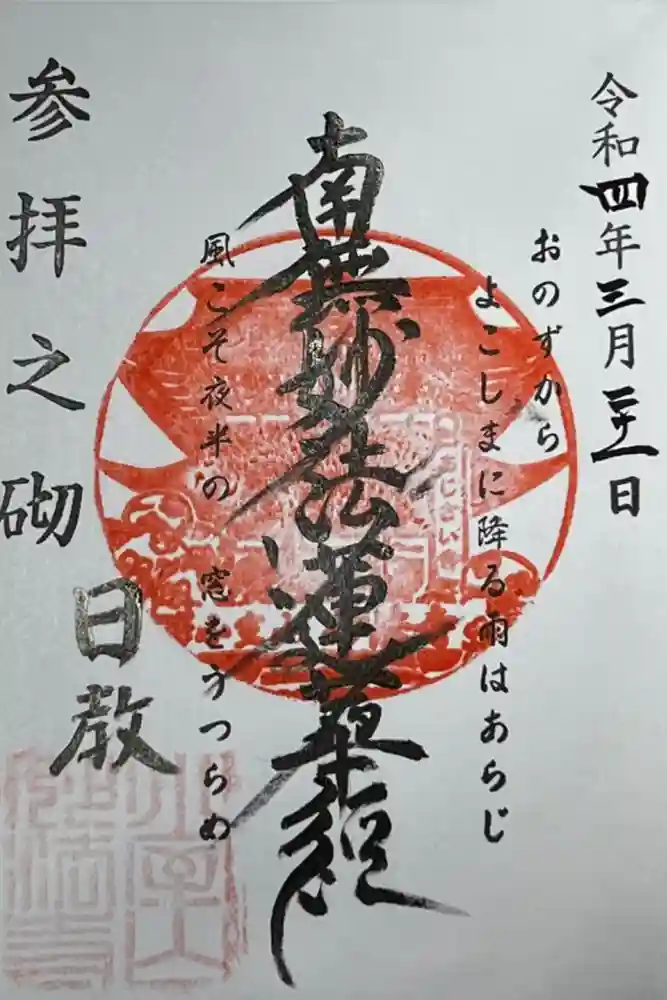 令和四年三月二十一日
おのずから
よこしまに降る雨はあらじ
南無妙法蓮華経
風こそ夜半の 窓をうつらめ
参拝之砌
日教